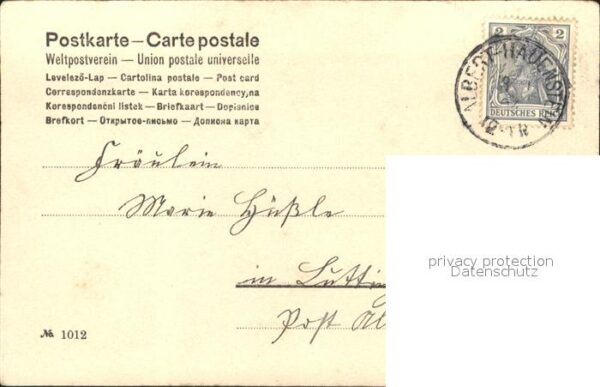 Postkarte — Carte postale
Weltpostverein — Union postale universelle
Levelező-Lap — Cartolina postale — Post card
Correspondenzkarte — Karta korespondency,na
Korespondenční lístek — Briefkaart — Dopisnice
Brefkort — Открытое-письмо — Дописна карта
2 2
DEUTSCHES REI
ALBERT-HAUENSTEIN
Fräulein
Marie Hüßle
in Lutti
Post Al
privacy protection
Datenschutz
№ 1012